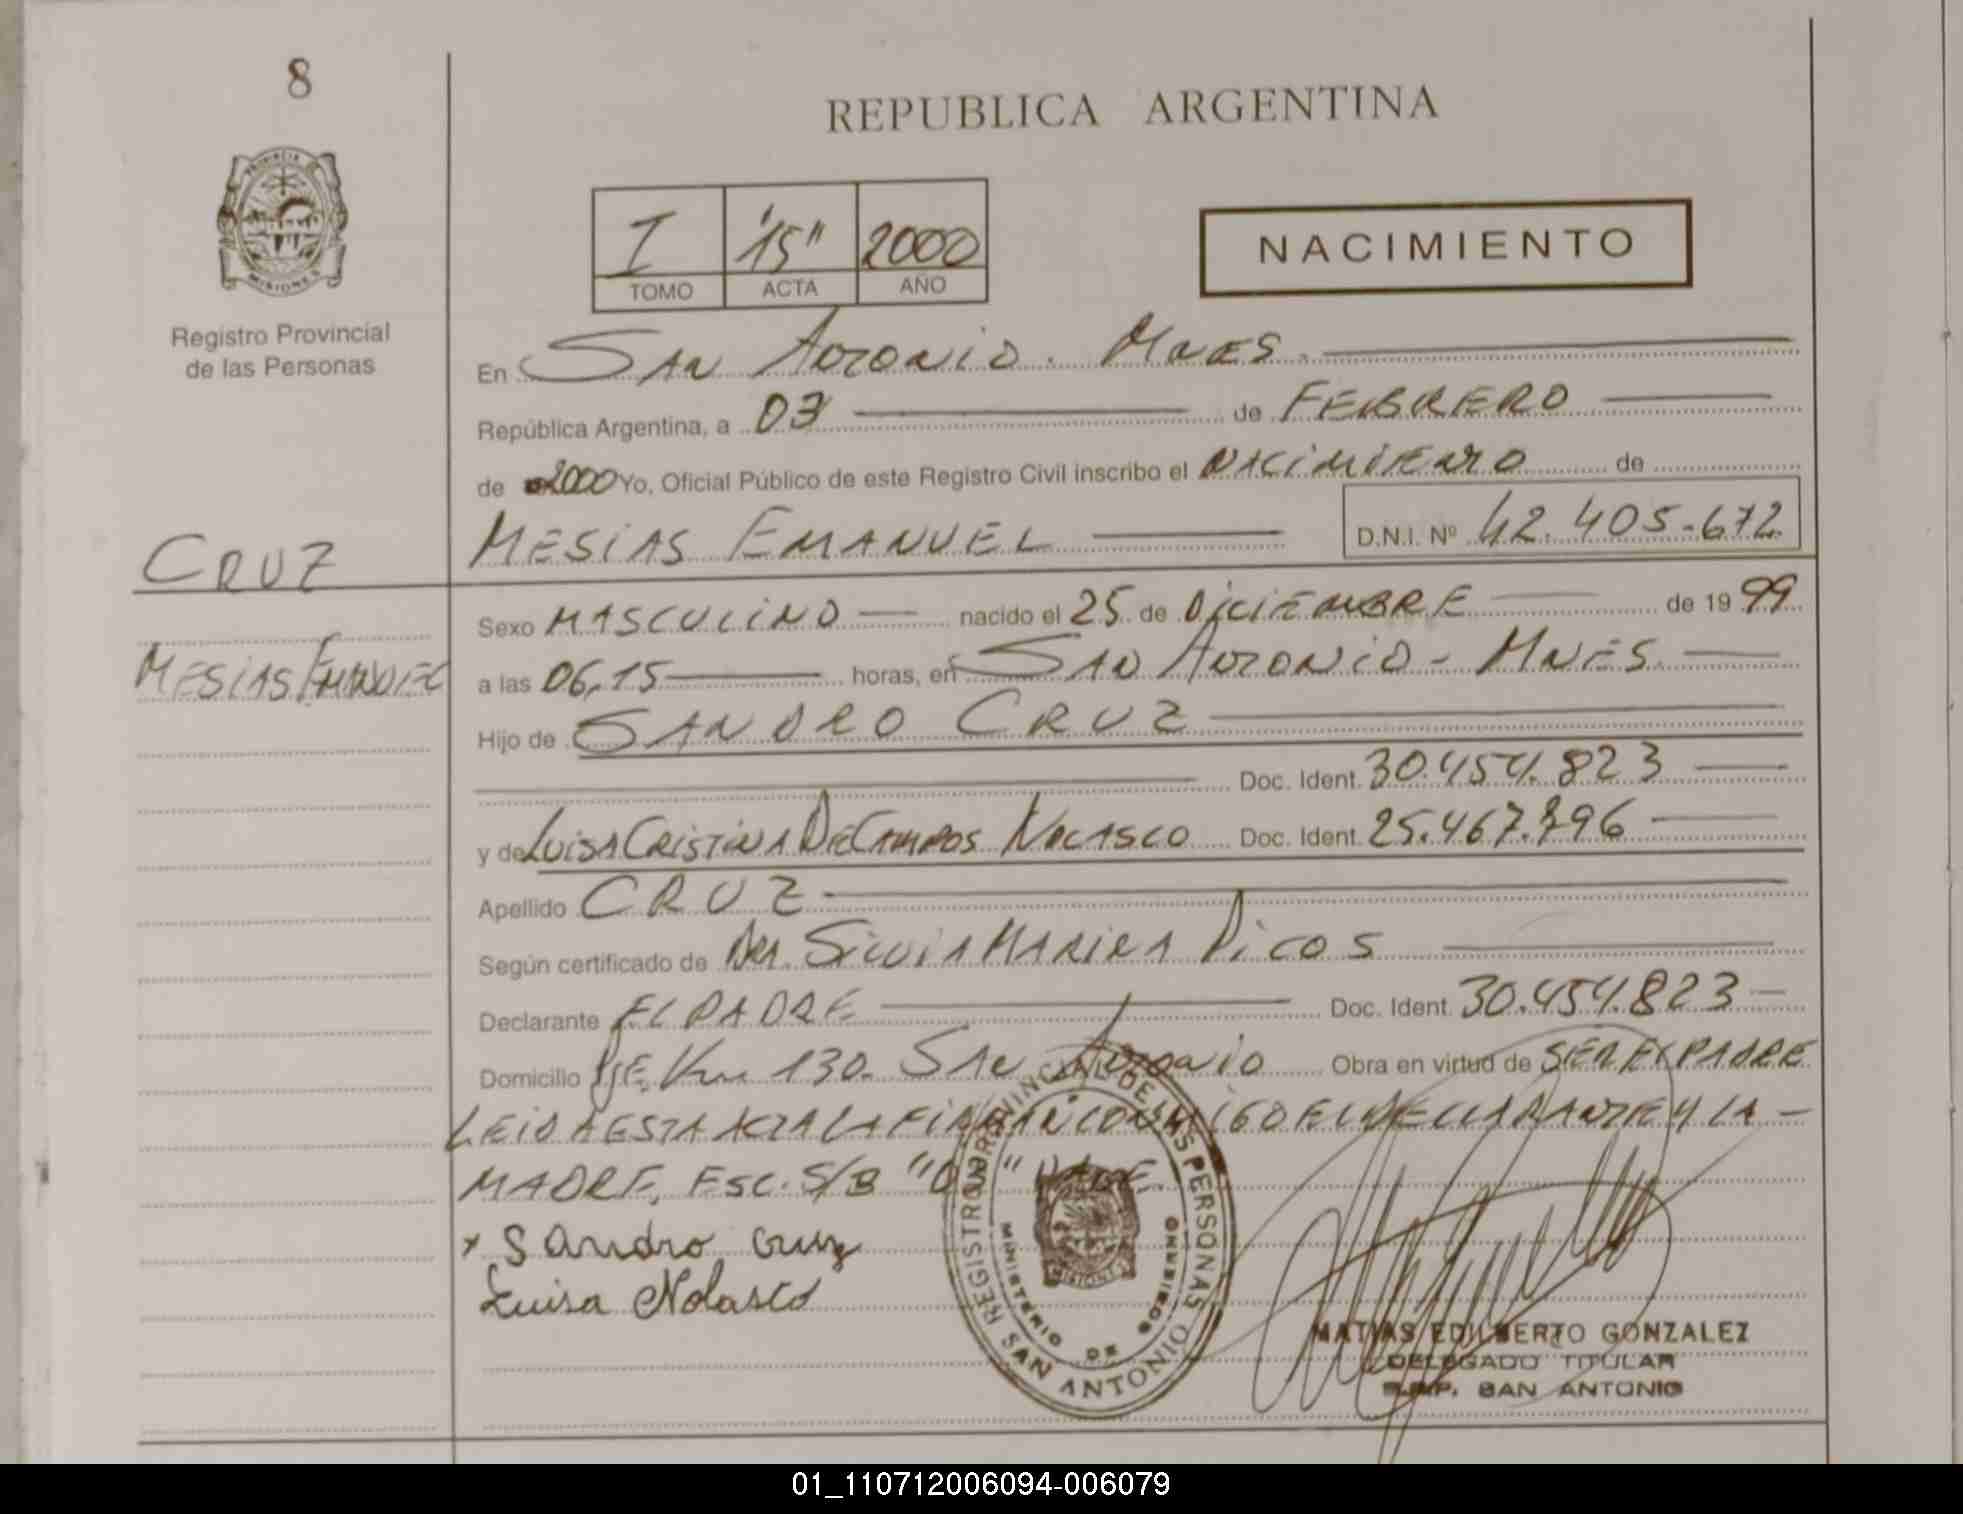 8
REPUBLICA ARGENTINA
PROVINCIA DE
MISIONES
Registro Provincial
de las Personas
I "15" 2000
TOMO ACTA AÑO
NACIMIENTO
En SAN ANTONIO. MNES.
República Argentina, a 03 de FEBRERO
de 2000 Yo, Oficial Público de este Registro Civil inscribo el NACIMIENTO de
MESIAS EMANUEL D.N.I. Nº 42.405.672
CRUZ
MESIAS EMANUEL
Sexo MASCULINO nacido el 25 de DICIEMBRE de 1999
a las 06,15 horas, en SAN ANTONIO - MNES.
Hijo de SANDRO CRUZ
Doc. Ident. 30.454.823
y de LUISA CRISTINA DE CAMPOS NOLASCO Doc. Ident. 25.467.796
Apellido CRUZ
Según certificado de DRA. SILVIA MARIRA PICOS
Declarante EL PADRE Doc. Ident. 30.454.823
Domicilio PJE. Km 130. SAN ANTONIO Obra en virtud de SER EL PADRE
LEIDA ESTA ACTA LA FIRMAN CONMIGO EL DECLARANTE Y LA
MADRE. ESC. S/B "03" VALE.
x Sandro Cruz
Luisa Nolasco
REGISTRO PROVINCIAL DE LAS PERSONAS
MINISTERIO DE GOBIERNO
MISIONES
SAN ANTONIO
MATIAS EDILBERTO GONZALEZ
DELEGADO TITULAR
R.P.P. SAN ANTONIO
01_110712006094-006079